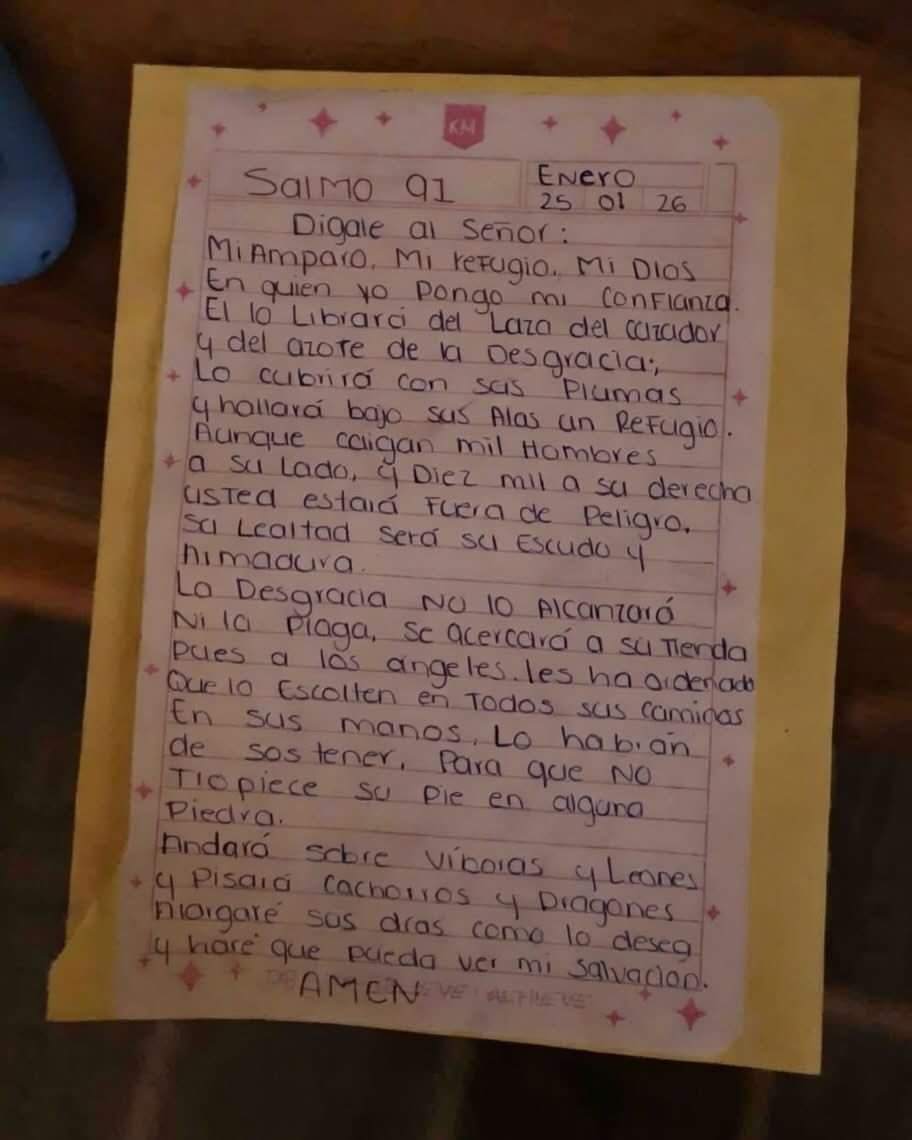 KM
Salmo 91
Enero
25 01 26
Digale al Señor:
Mi Amparo, Mi refugio. Mi Dios
En quien yo Pongo mi Confianza.
El lo Librará del Lazo del cazador
y del azote de la Desgracia;,
Lo cubrirá con sus Plumas
y hallará bajo sus Alas un Refugio.
Aunque caigan mil Hombres
a su Lado, y Diez mil a su derecha
usted estará Fuera de Peligro.
Su Lealtad será su Escudo y
Armadura.
La Desgracia No lo Alcanzará
Ni la Plaga, se acercará a su Tienda
Pues a los ángeles. les ha ordenado
Que lo Escolten en Todos sus caminos
En sus manos, Lo habián
de sostener, Para que No
Tropiece su Pie en alguna
Piedra.
Andará sobre víboras y Leones
y Pisará Cachorros y Dragones
Alargaré sus días como lo desea
y haré que pueda ver mi Salvación.
AMEN